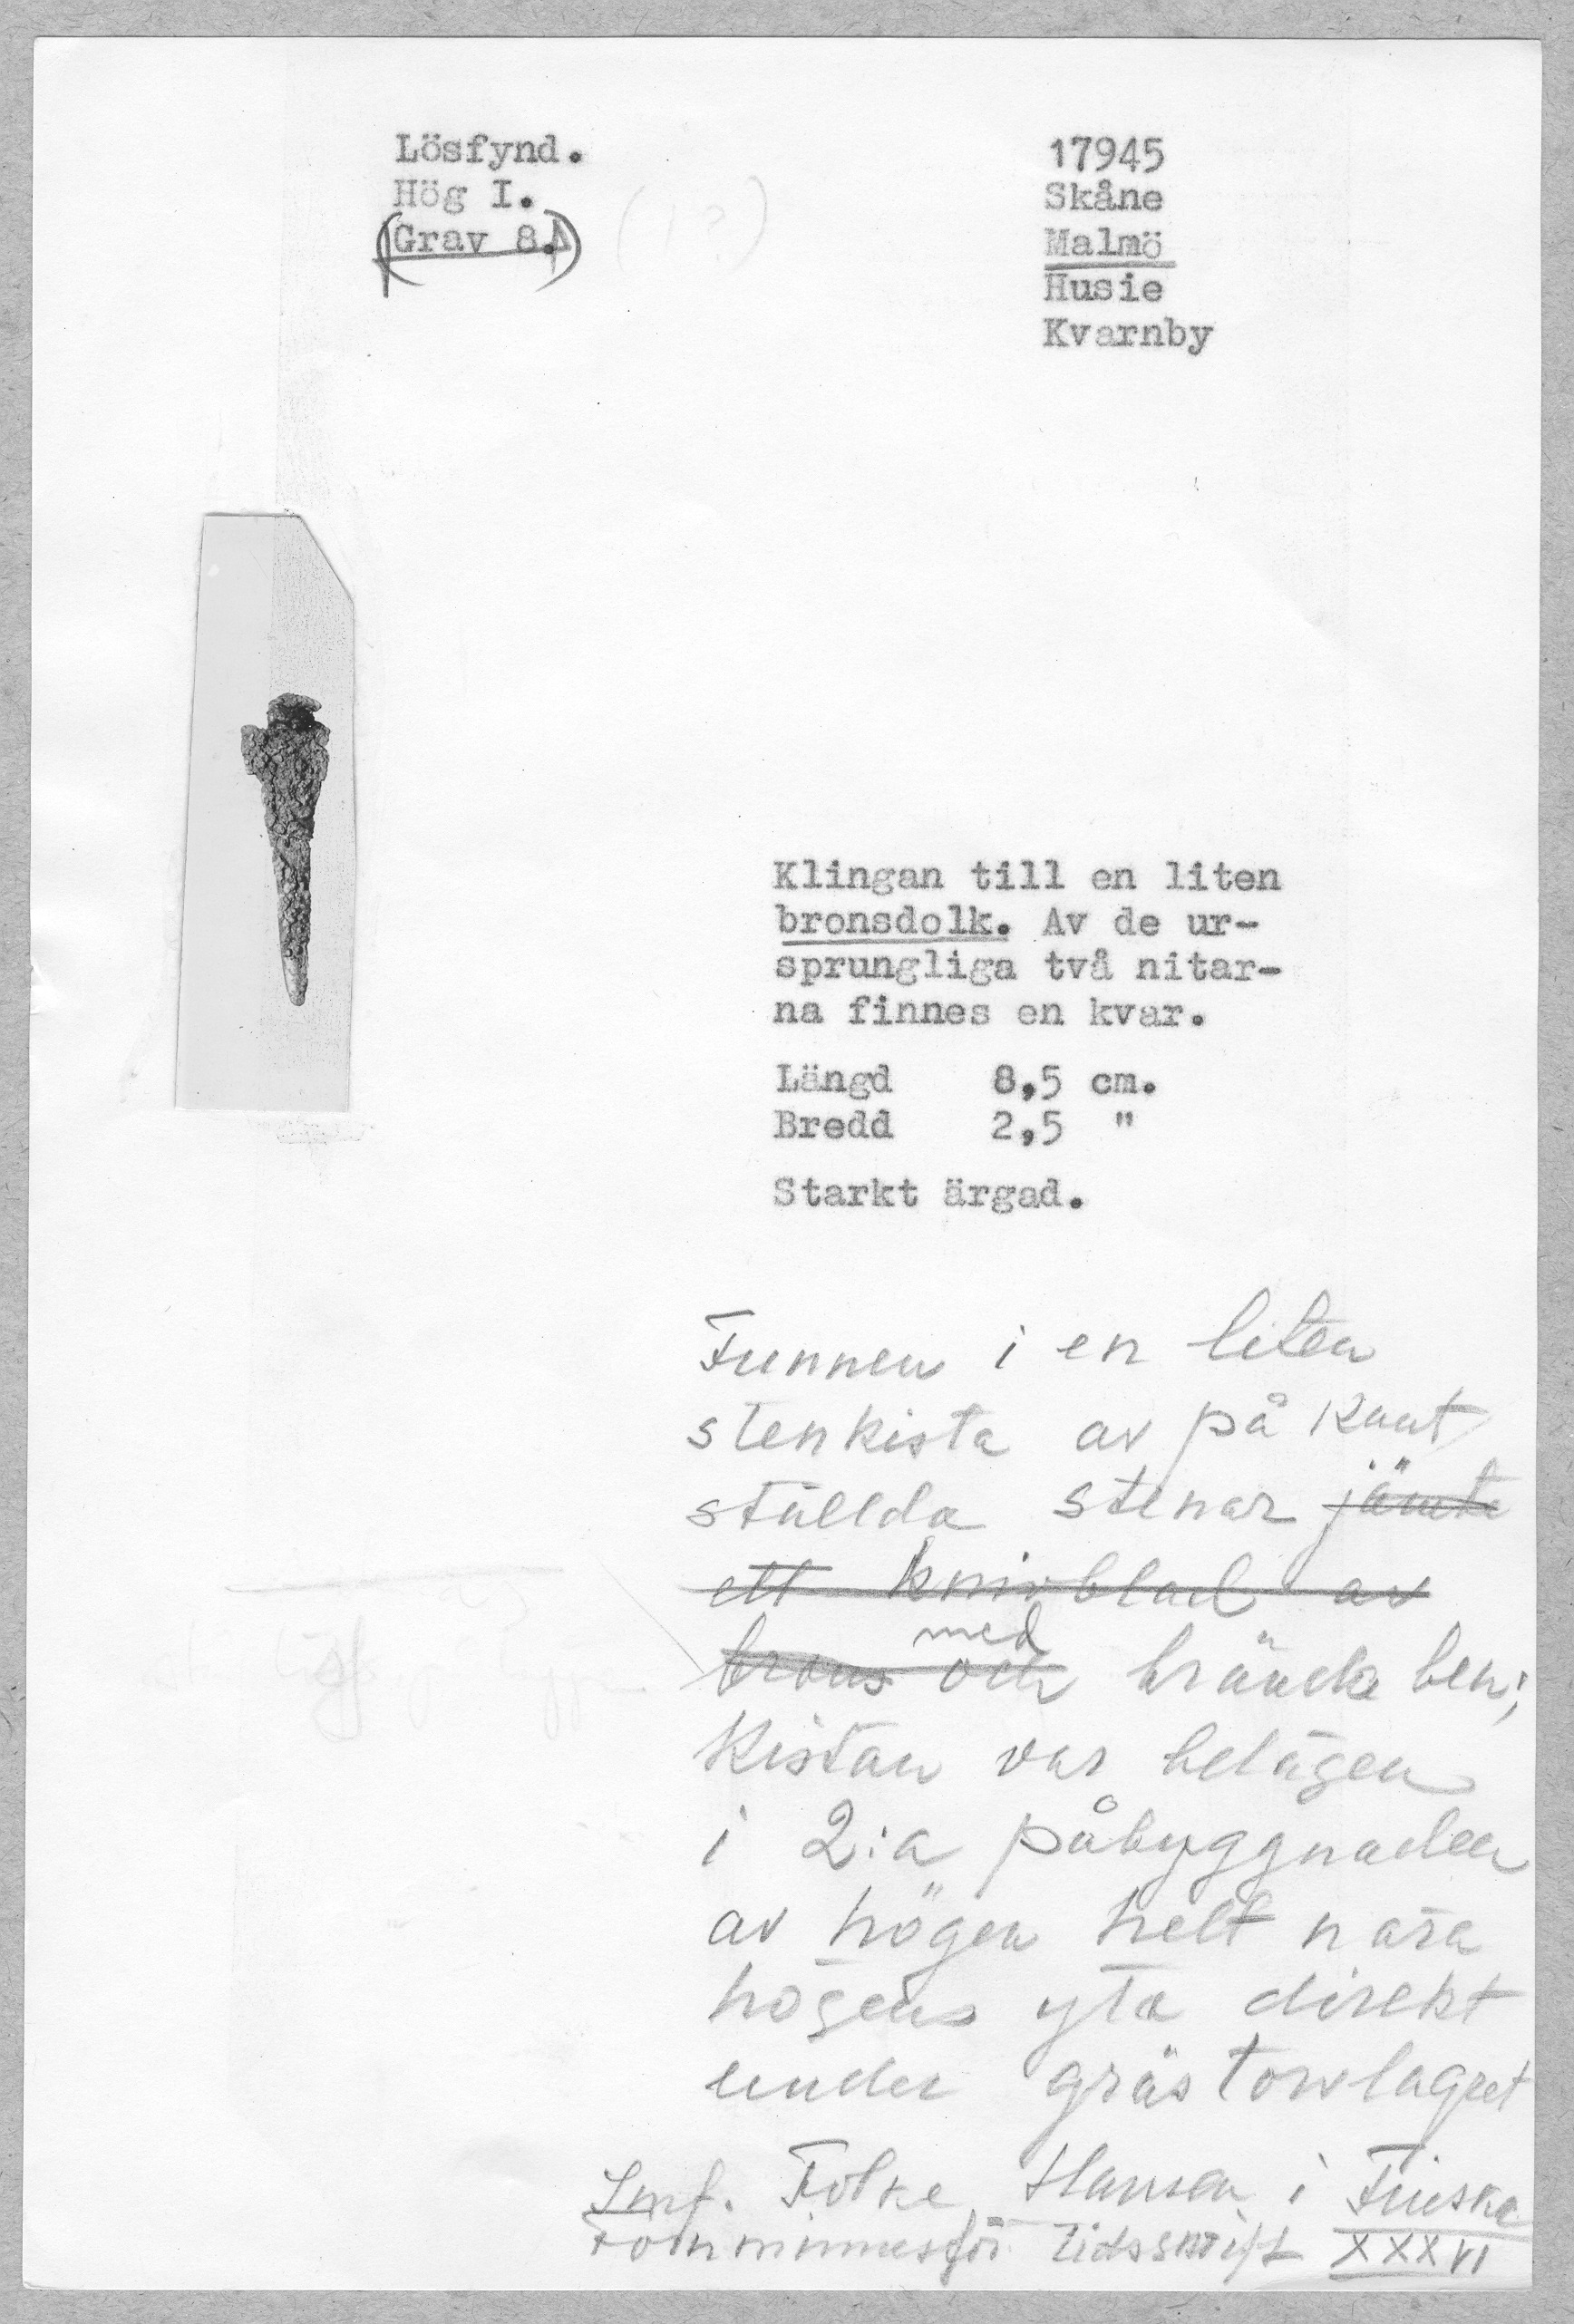 Lösfynd.
Hög I.
(Grav 8.)
(1?)
17945
Skåne
Malmö
Husie
Kvarnby
Klingan till en liten
bronsdolk. Av de ur-
sprungliga två nitar-
na finnes en kvar.
Längd 8,5 cm.
Bredd 2,5 "
Starkt ärgad.
Funnen i en liten
stenkista av på kant
ställda stenar jämte
ett knivblad av
med
brons och brända ben;
Kistan var belägen
i 2:a påbyggnaden
av högen helt nära
högens yta direkt
under grästorvlagret
Jmf. Folke Hansen i Finska
Fornminnesför. tidsskrift XXXVI